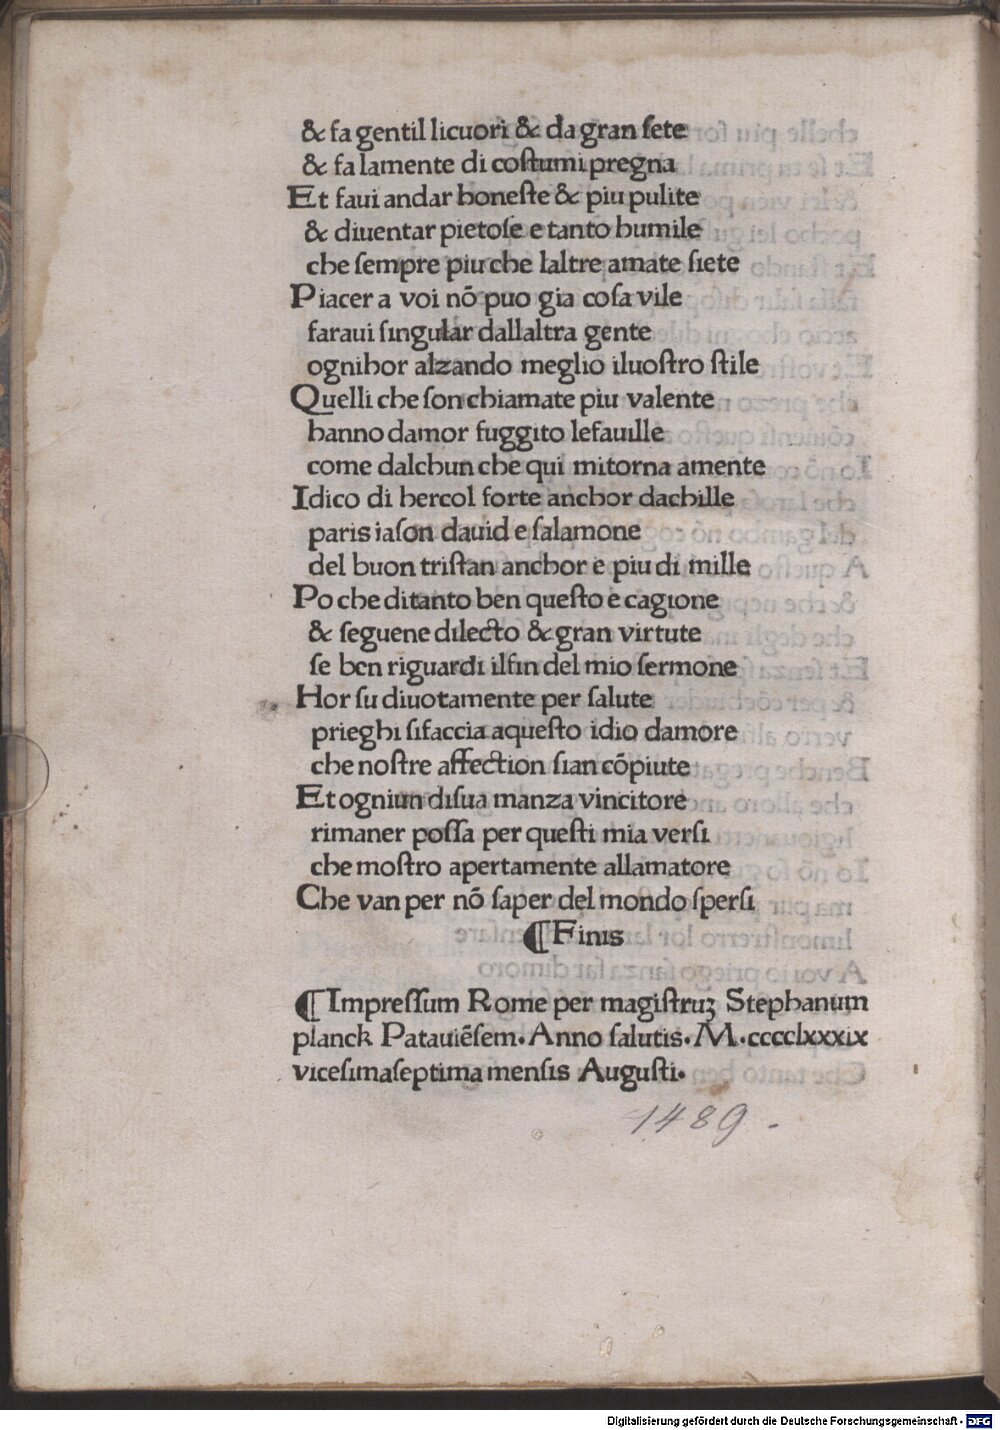 & fa gentil licuori & da gran ſete
& fa lamente di coſtumi pregna
Et faui andar honeſte & piu pulite
& diuentar pietoſe e tanto humile
che ſempre piu che laltre amate ſiete
Piacer a voi nō puo gia coſa vile
faraui ſingular dallaltra gente
ognihor alzando meglio iluoſtro ſtile
Quelli che ſon chiamate piu valente
hanno damor fuggito lefauille
come dalchun che qui mitorna amente
Idico di hercol forte anchor dachille
paris iaſon dauid e ſalamone
del buon triſtan anchor e piu di mille
Po che ditanto ben queſto e cagione
& ſeguene dilecto & gran virtute
ſe ben riguardi ilfin del mio ſermone
Hor ſu diuotamente per ſalute
prieghi ſifaccia aqueſto idio damore
che noſtre affection ſian cōpiute
Et ogniun diſua manza vincitore
rimaner poſſa per queſti mia verſi
che moſtro apertamente allamatore
Che van per nō ſaper del mondo ſperſi
¶ Finis
¶ Impreſſum Rome per magiſtruꝫ Stephanum
planck Patauiēſem. Anno ſalutis. M.cccclxxxix
viceſimaſeptima menſis Auguſti.
1489.
Digitalisierung gefördert durch die Deutsche Forschungsgemeinschaft - DFG